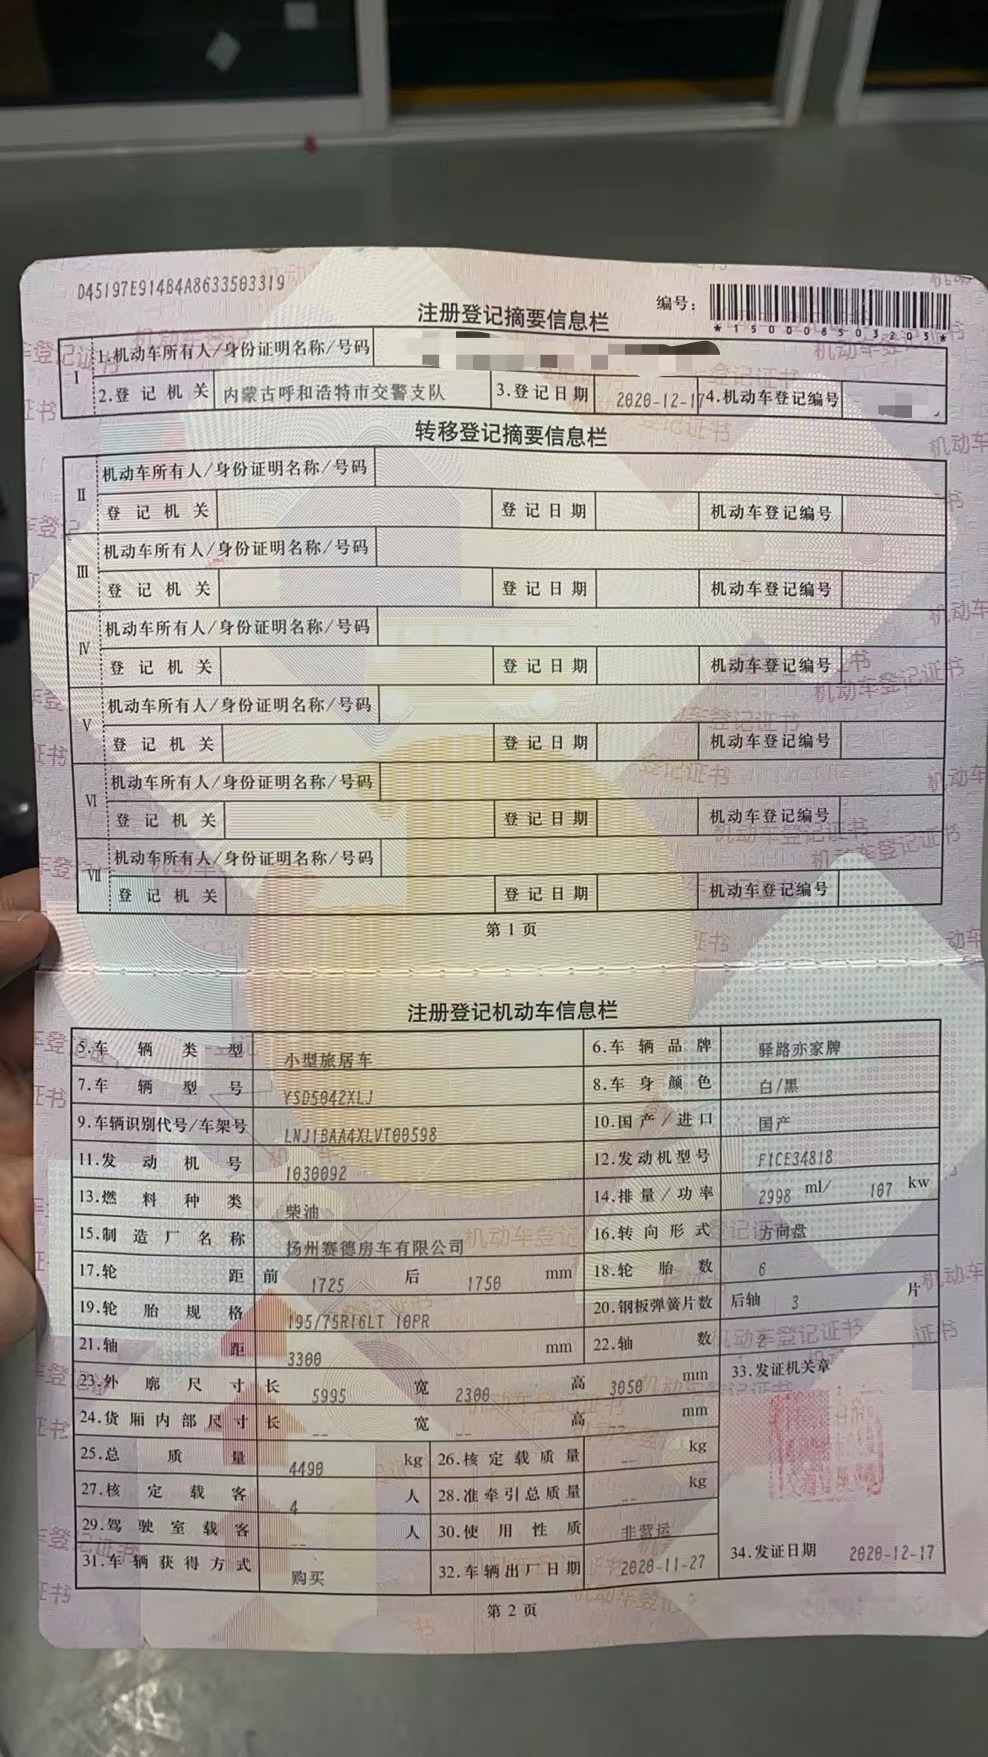 D45197E914B4A8633503319
编号：
*150006503203*
注册登记摘要信息栏
I 1.机动车所有人/身份证明名称/号码
2.登记机关 内蒙古呼和浩特市交警支队 3.登记日期 2020-12-17 4.机动车登记编号
转移登记摘要信息栏
II 机动车所有人/身份证明名称/号码
登记机关 登记日期 机动车登记编号
III 机动车所有人/身份证明名称/号码
登记机关 登记日期 机动车登记编号
IV 机动车所有人/身份证明名称/号码
登记机关 登记日期 机动车登记编号
V 机动车所有人/身份证明名称/号码
登记机关 登记日期 机动车登记编号
VI 机动车所有人/身份证明名称/号码
登记机关 登记日期 机动车登记编号
VII 机动车所有人/身份证明名称/号码
登记机关 登记日期 机动车登记编号
第1页
注册登记机动车信息栏
5.车辆类型 小型旅居车 6.车辆品牌 驿路亦家牌
7.车辆型号 YSD5042XLJ 8.车身颜色 白/黑
9.车辆识别代号/车架号 LNJ1BAA4XLVT00598 10.国产/进口 国产
11.发动机号 1030092 12.发动机型号 F1CE34818
13.燃料种类 柴油 14.排量/功率 2998 ml/ 107 kw
15.制造厂名称 扬州赛德房车有限公司 16.转向形式 方向盘
17.轮距 前 1725 后 1750 mm 18.轮胎数 6
19.轮胎规格 195/75R16LT 10PR 20.钢板弹簧片数 后轴 3 片
21.轴距 3300 mm 22.轴数 2
23.外廓尺寸 长 5995 宽 2300 高 3050 mm 33.发证机关章
24.货厢内部尺寸 长 -- 宽 -- 高 -- mm
25.总质量 4490 kg 26.核定载质量 -- kg
27.核定载客 4 人 28.准牵引总质量 -- kg
29.驾驶室载客 -- 人 30.使用性质 非营运
31.车辆获得方式 购买 32.车辆出厂日期 2020-11-27 34.发证日期 2020-12-17
第2页